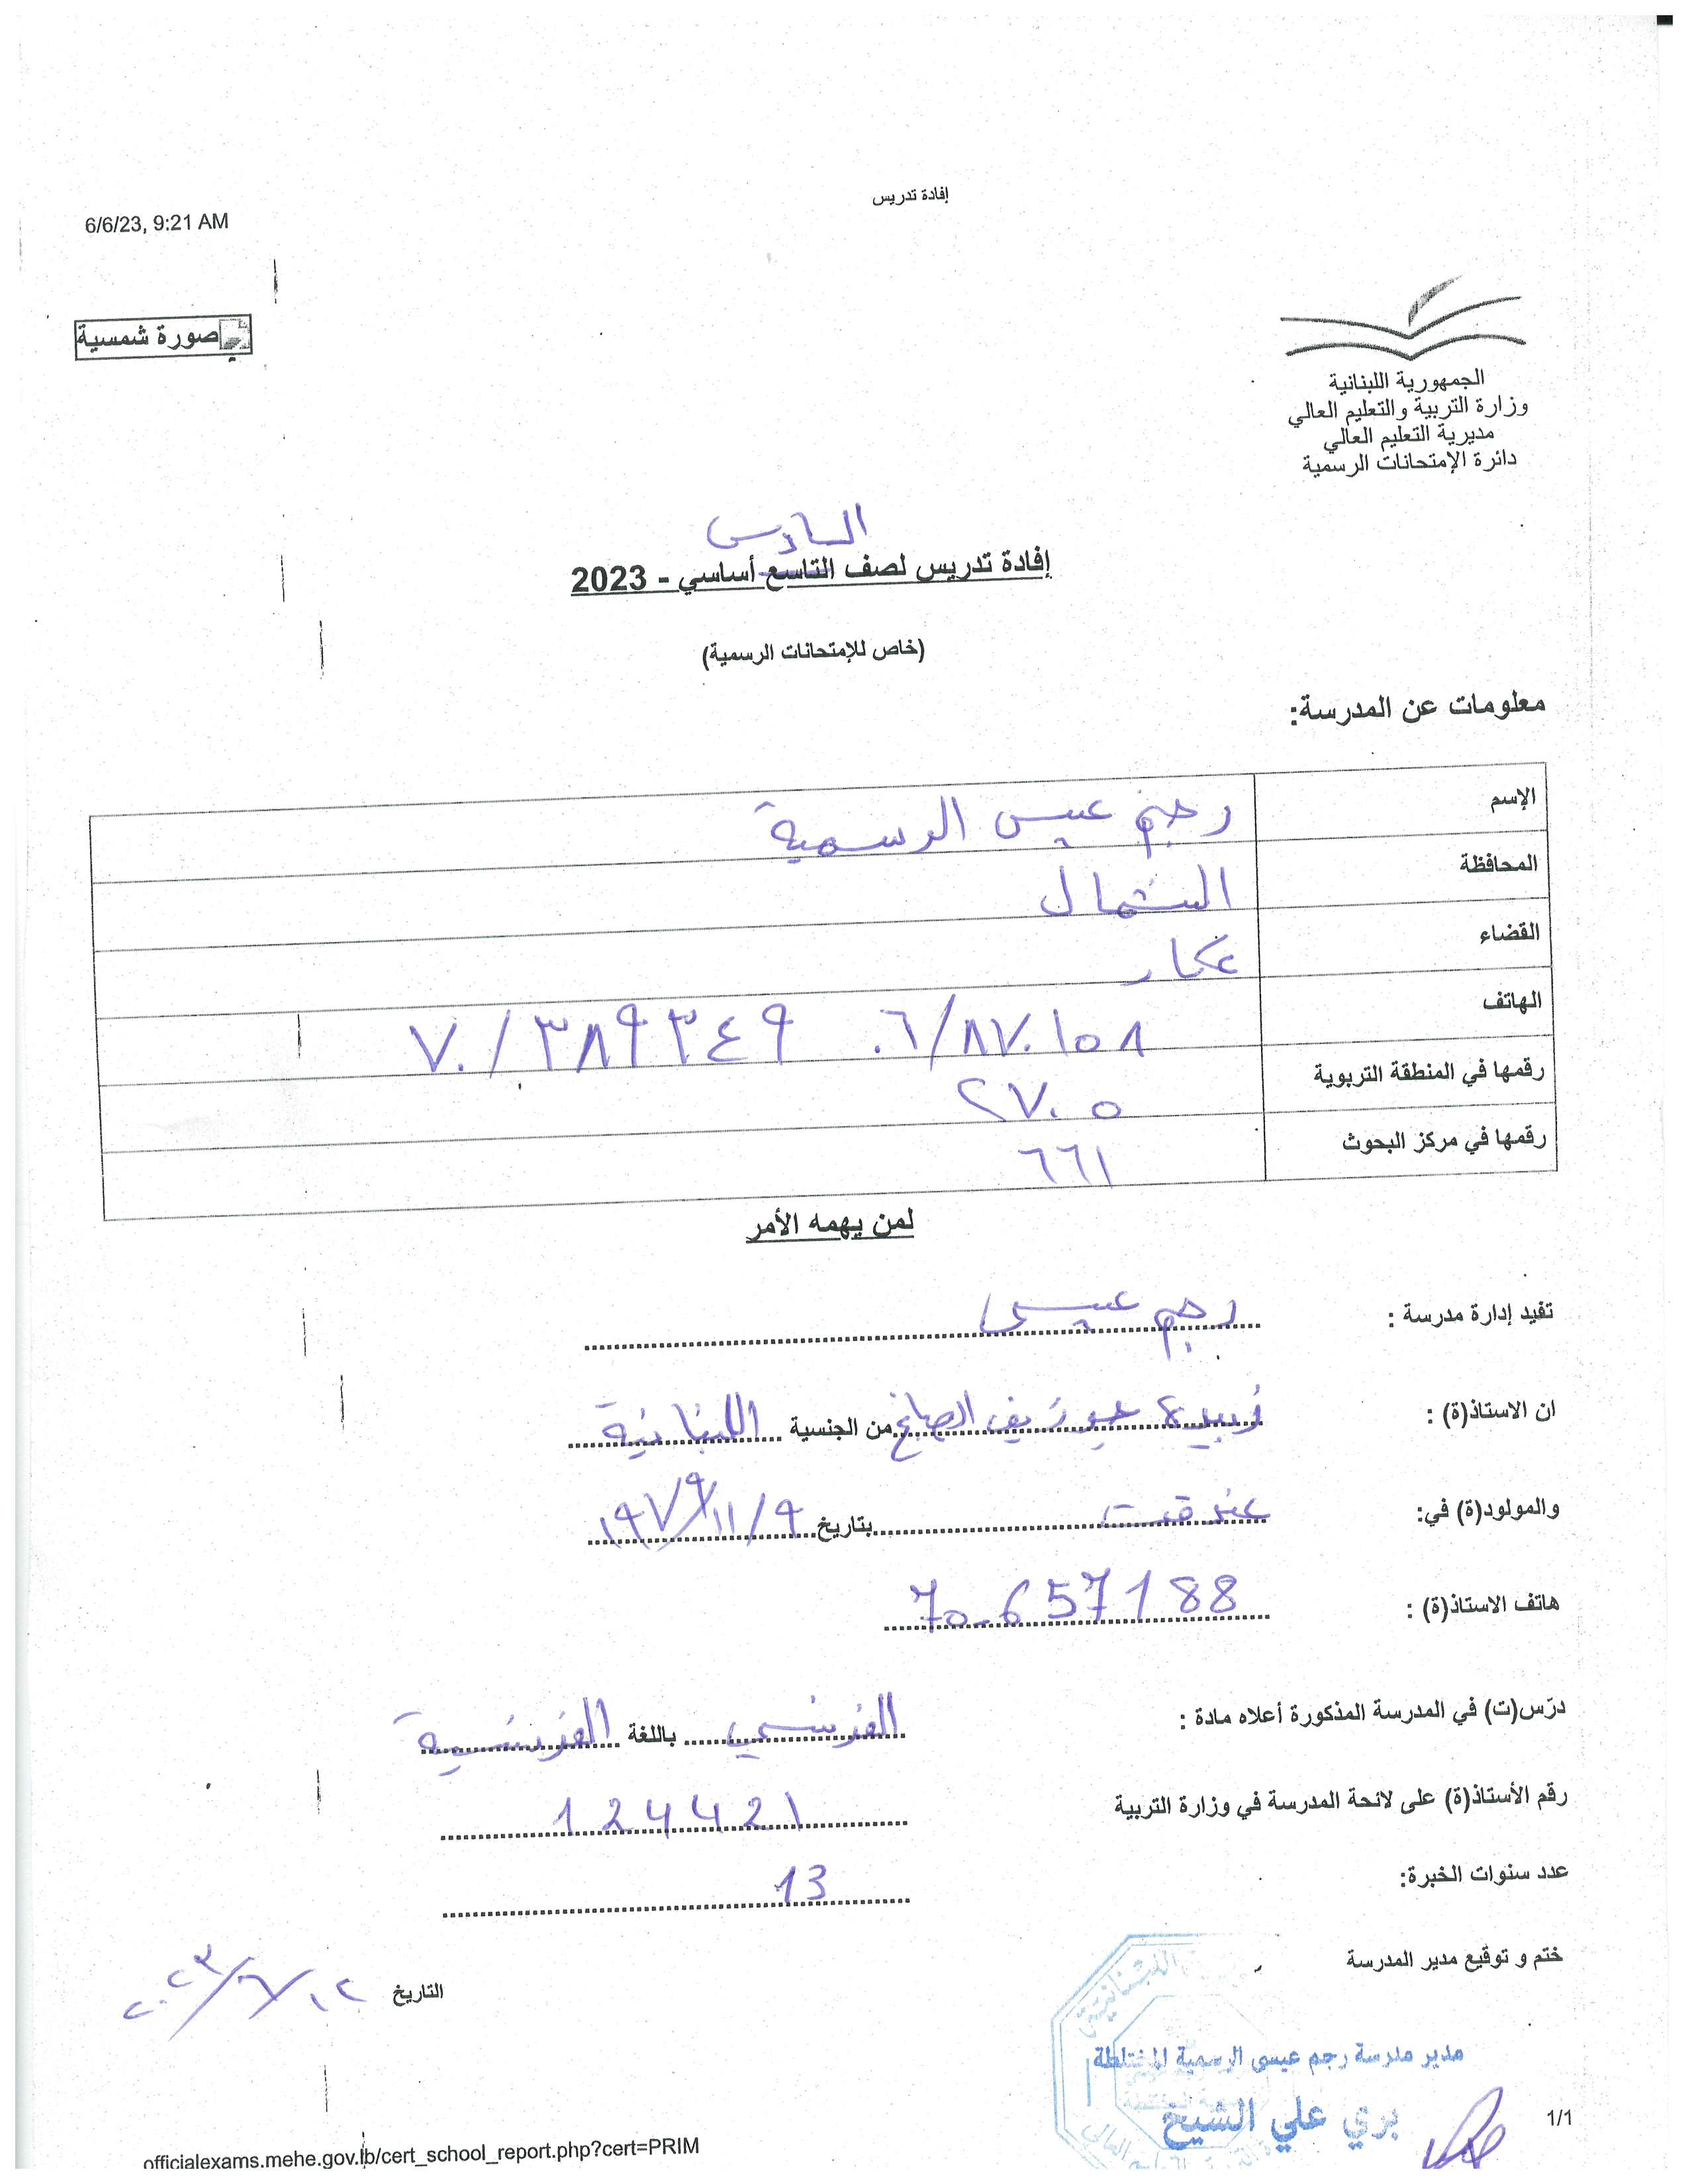 6/6/23, 9:21 AM
إفادة تدريس
صورة شمسية
الجمهورية اللبنانية
وزارة التربية والتعليم العالي
مديرية التعليم العالي
دائرة الإمتحانات الرسمية
السادس
إفادة تدريس لصف التاسع أساسي - 2023
(خاص للإمتحانات الرسمية)
معلومات عن المدرسة:
الإسم رجم عيسى الرسمية
المحافظة الشمال
القضاء عكار
الهاتف ٠٦/٨٧٠١٥٨ ٧٠/٣٨٩٣٤٩
رقمها في المنطقة التربوية ٢٧٠٥
رقمها في مركز البحوث ٦٦١
لمن يهمه الأمر
تفيد إدارة مدرسة : رجم عيسى
ان الاستاذ(ة) : زبيدة الصايغ من الجنسية اللبنانية
والمولود(ة) في: عندقت بتاريخ ٩/١١/١٩٧٩
هاتف الاستاذ(ة) : 70-657188
درّس(ت) في المدرسة المذكورة أعلاه مادة : الفرنسي باللغة الفرنسية
رقم الأستاذ(ة) على لائحة المدرسة في وزارة التربية 124421
عدد سنوات الخبرة: 13
ختم و توقيع مدير المدرسة
التاريخ ١٢/٦/٢٠٢٣
مدير مدرسة رجم عيسى الرسمية المختلطة
بري علي الشيخ
1/1
officialexams.mehe.gov.lb/cert_school_report.php?cert=PRIM